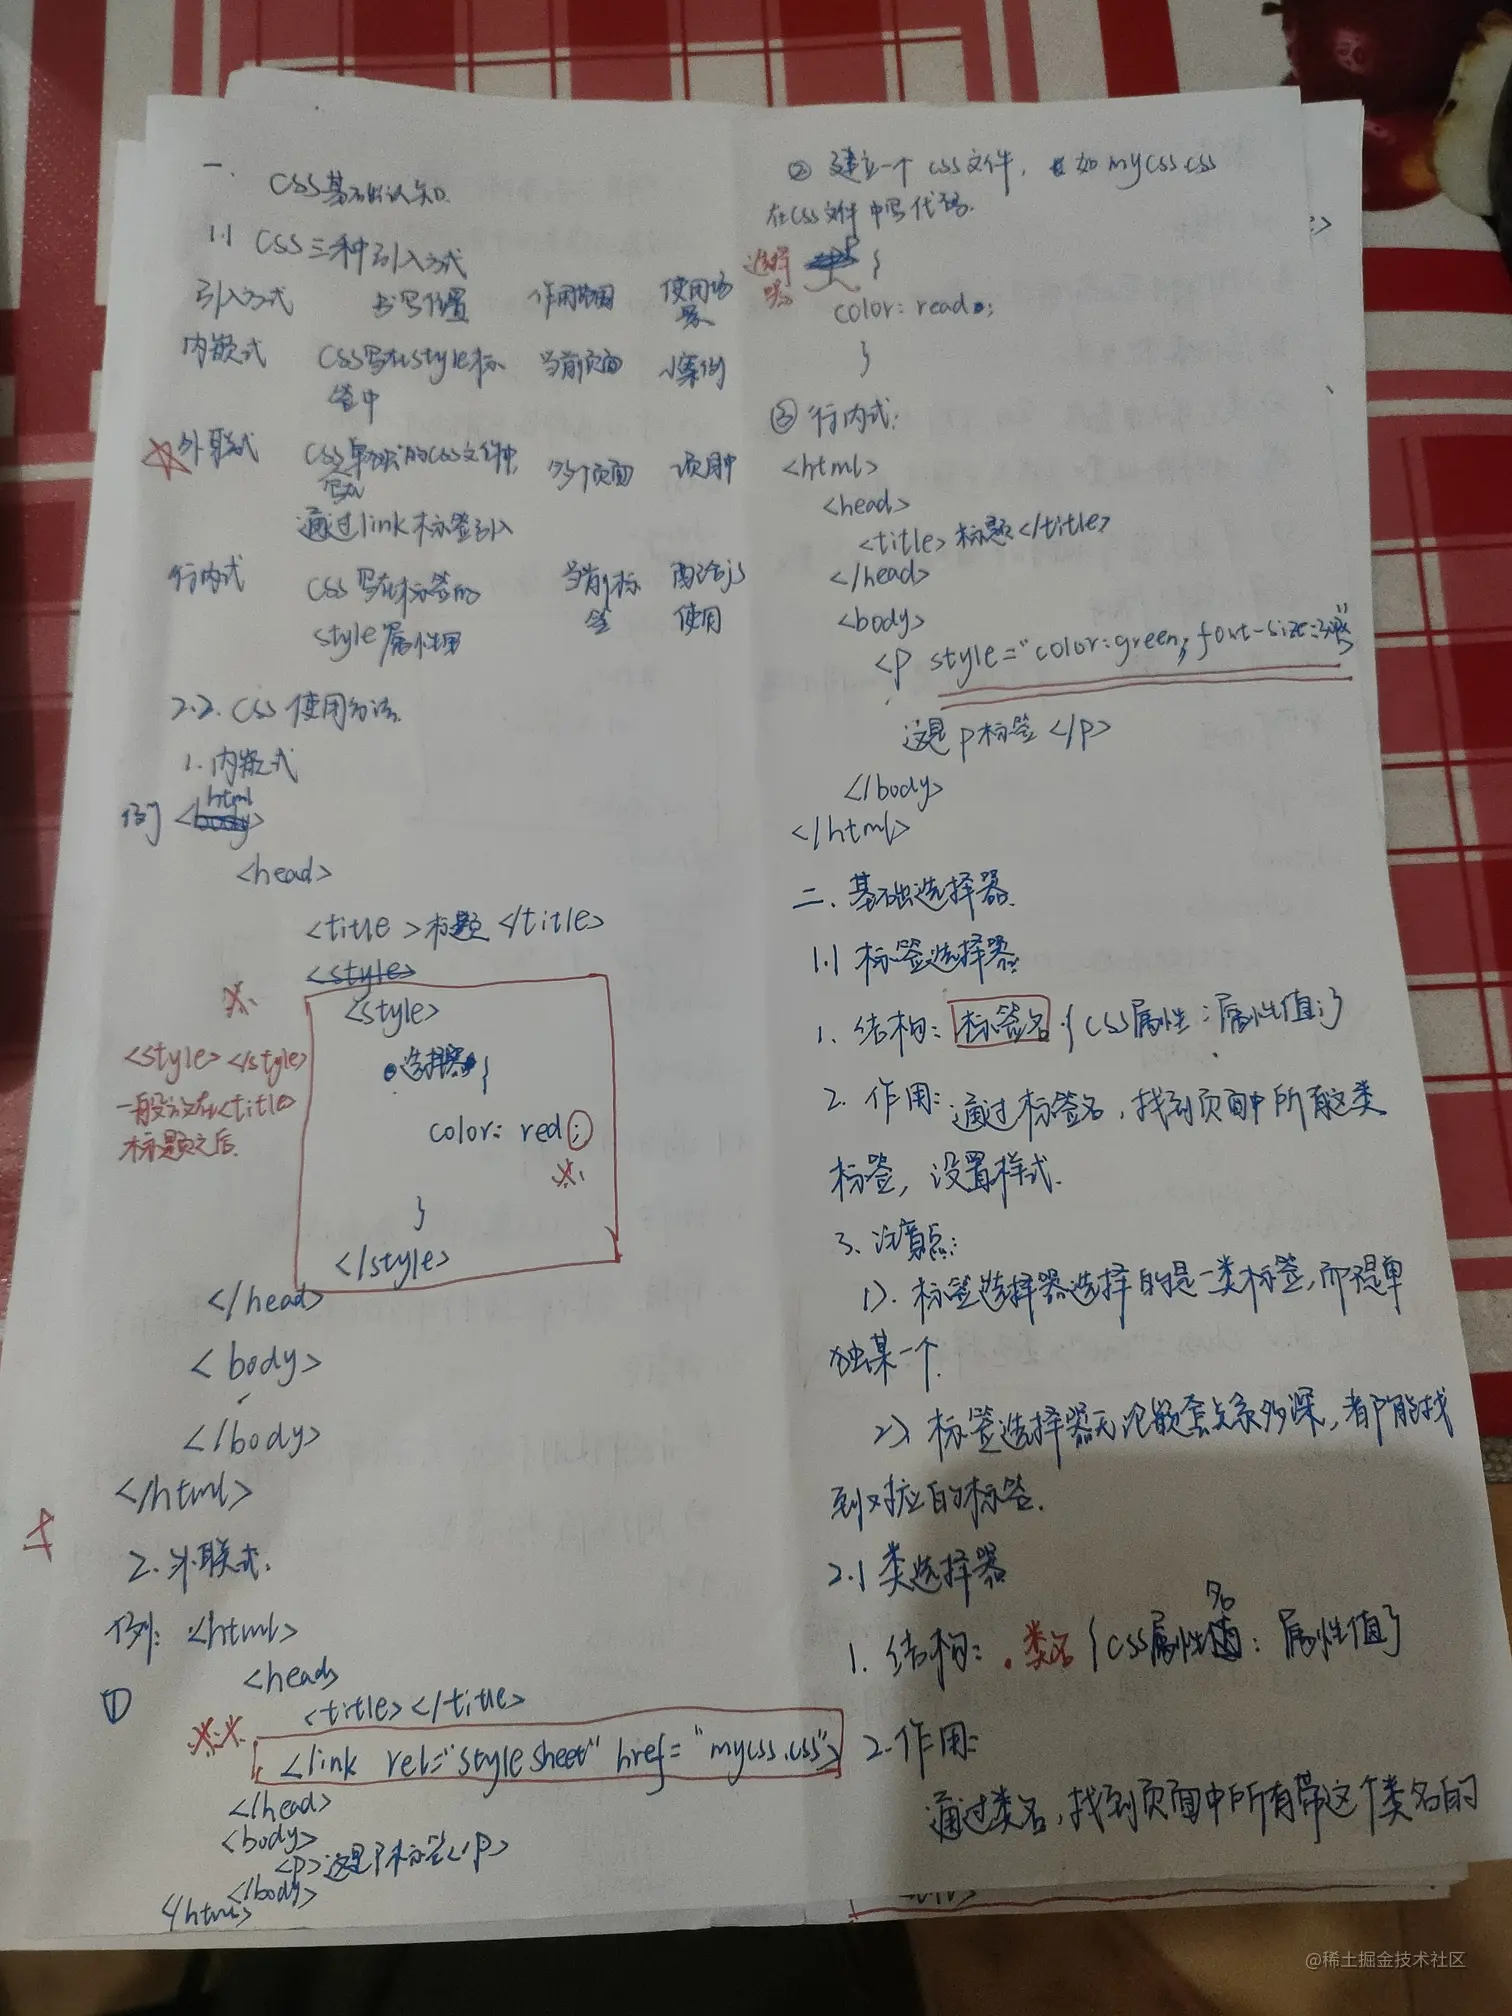 一.
CSS基础认知
1.1 CSS三种引入方式
引入方式 书写位置 作用范围 使用场景
内嵌式 CSS写在style标签中 当前页面 小案例
外联式 CSS写在单独的CSS文件中, 通过link标签引入 多个页面 项目中
行内式 CSS写在标签的style属性里 当前标签 配合js使用
2.2. CSS使用方法.
1. 内嵌式
例 <html>
<head>
<title>标题</title>
<style>
<style>
选择器{
color: red;
}
</style>
</head>
<body>
</body>
</html>
<style></style>
一般放在<title>
标题之后.
2. 外联式.
例: <html>
①
<head>
<title></title>
<link rel="stylesheet" href="mycss.css">
</head>
<body>
<p>这是P标签</p>
</body>
</html>
② 建立一个css文件, 如mycss.css
在CSS文件中写代码.
选择器 P {
color: read;
}
③ 行内式:
<html>
<head>
<title>标题</title>
</head>
<body>
<p style="color:green; font-size:
这是p标签</p>
</body>
</html>
二. 基础选择器.
1.1 标签选择器
1. 结构: 标签名{CSS属性:属性值;}
2. 作用: 通过标签名, 找到页面中所有这类
标签, 设置样式.
3. 注意点:
1). 标签选择器选择的是一类标签, 而不是单
独某一个.
2) 标签选择器无论嵌套关系多深, 都能找
到对应的标签.
2.1 类选择器
1. 结构: .类名{CSS属性名: 属性值}
2. 作用:
通过类名, 找到页面中所有带这个类名的
@稀土掘金技术社区